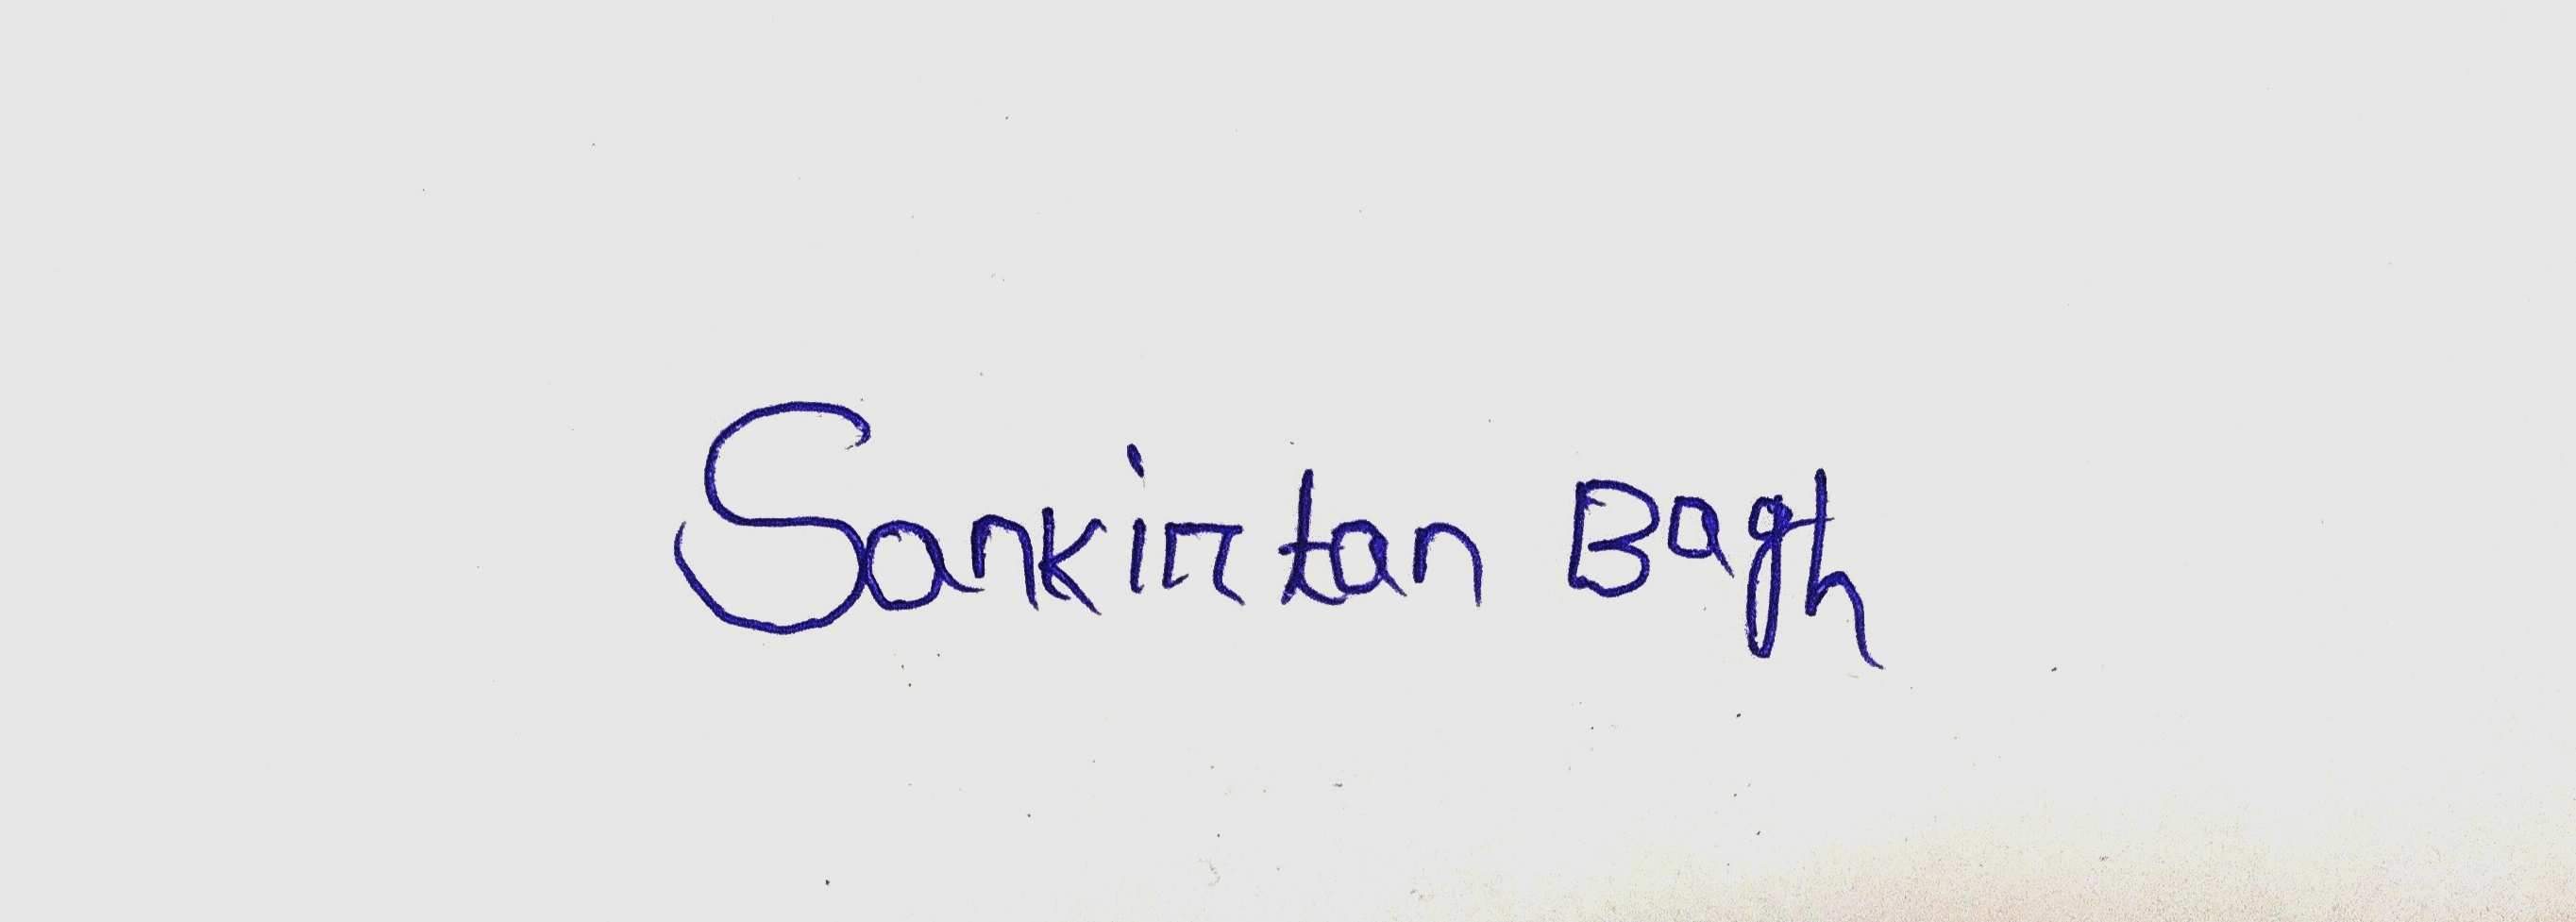 Sankirtan Bagh